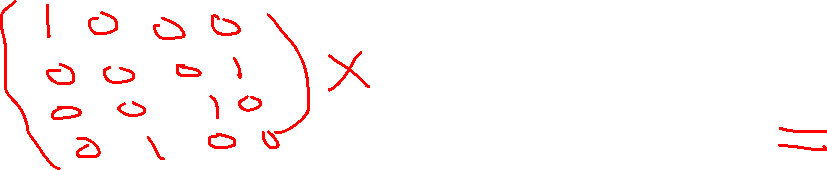 ( 1 0 0 0
0 0 0 1 ) × =
0 0 1 0
0 1 0 0